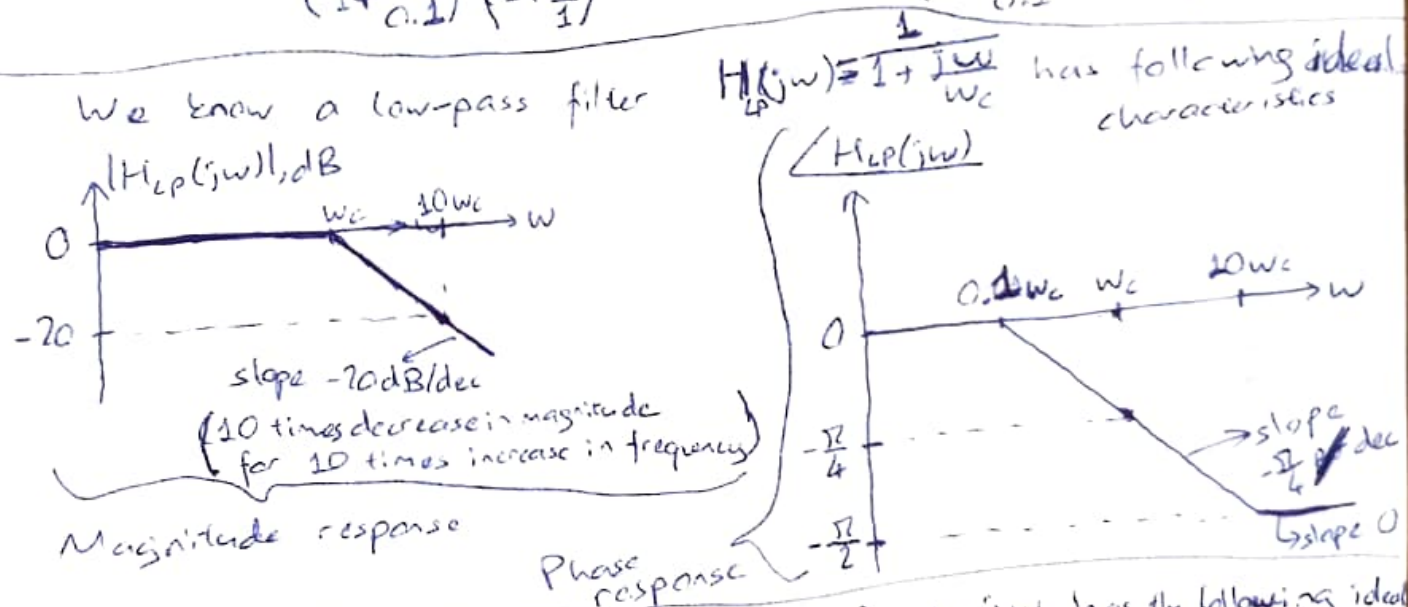 0.1
1
We know a low-pass filter H_LP(jω) = 1 / (1 + jω/ω_c) has following ideal
characteristics
|H_LP(jω)|, dB
ω_c 10ω_c ω
0
-20
slope -20dB/dec
(10 times decrease in magnitude
for 10 times increase in frequency)
Magnitude response
∠H_LP(jω)
0.1ω_c ω_c 10ω_c ω
0
-π/4
slope
-π/4 / dec
-π/2
slope 0
Phase
response
the following ideal